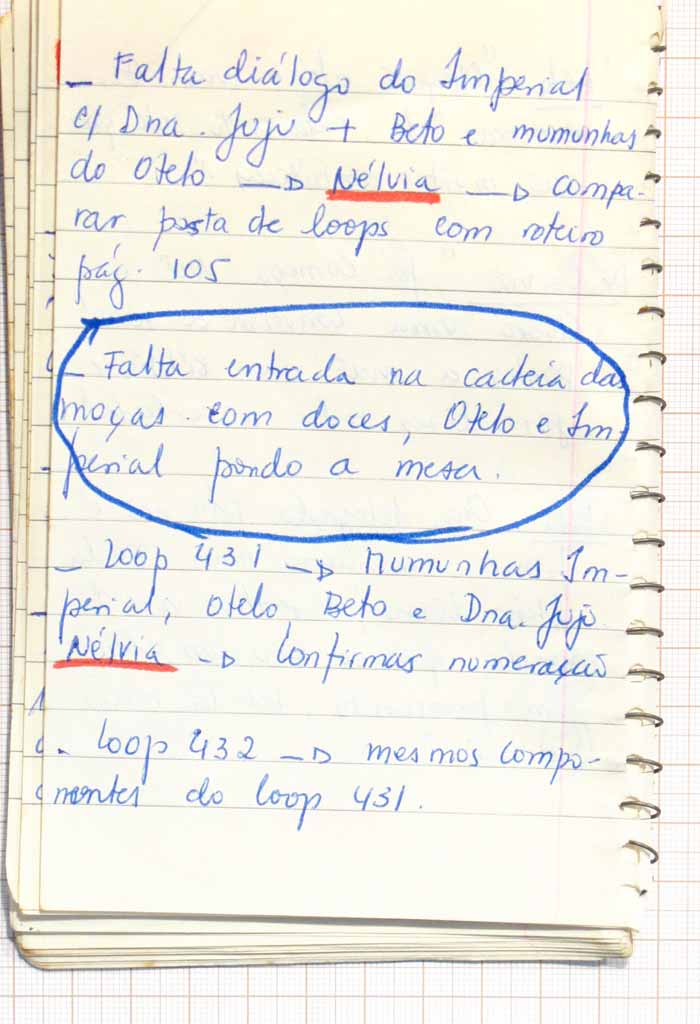 _ Falta diálogo do Imperial
c/ Dna. Juju + Beto e mumunhas
do Otelo → Nélvia → compa-
rar pasta de loops com roteiro
pág. 105
_ Falta entrada na cadeia das
moças com doces, Otelo e Im-
perial pondo a mesa.
_ Loop 431 → Mumunhas Im-
perial, Otelo, Beto e Dna. Juju
Nélvia → Confirmas numeração
- Loop 432 → mesmos compo-
nentes do loop 431.